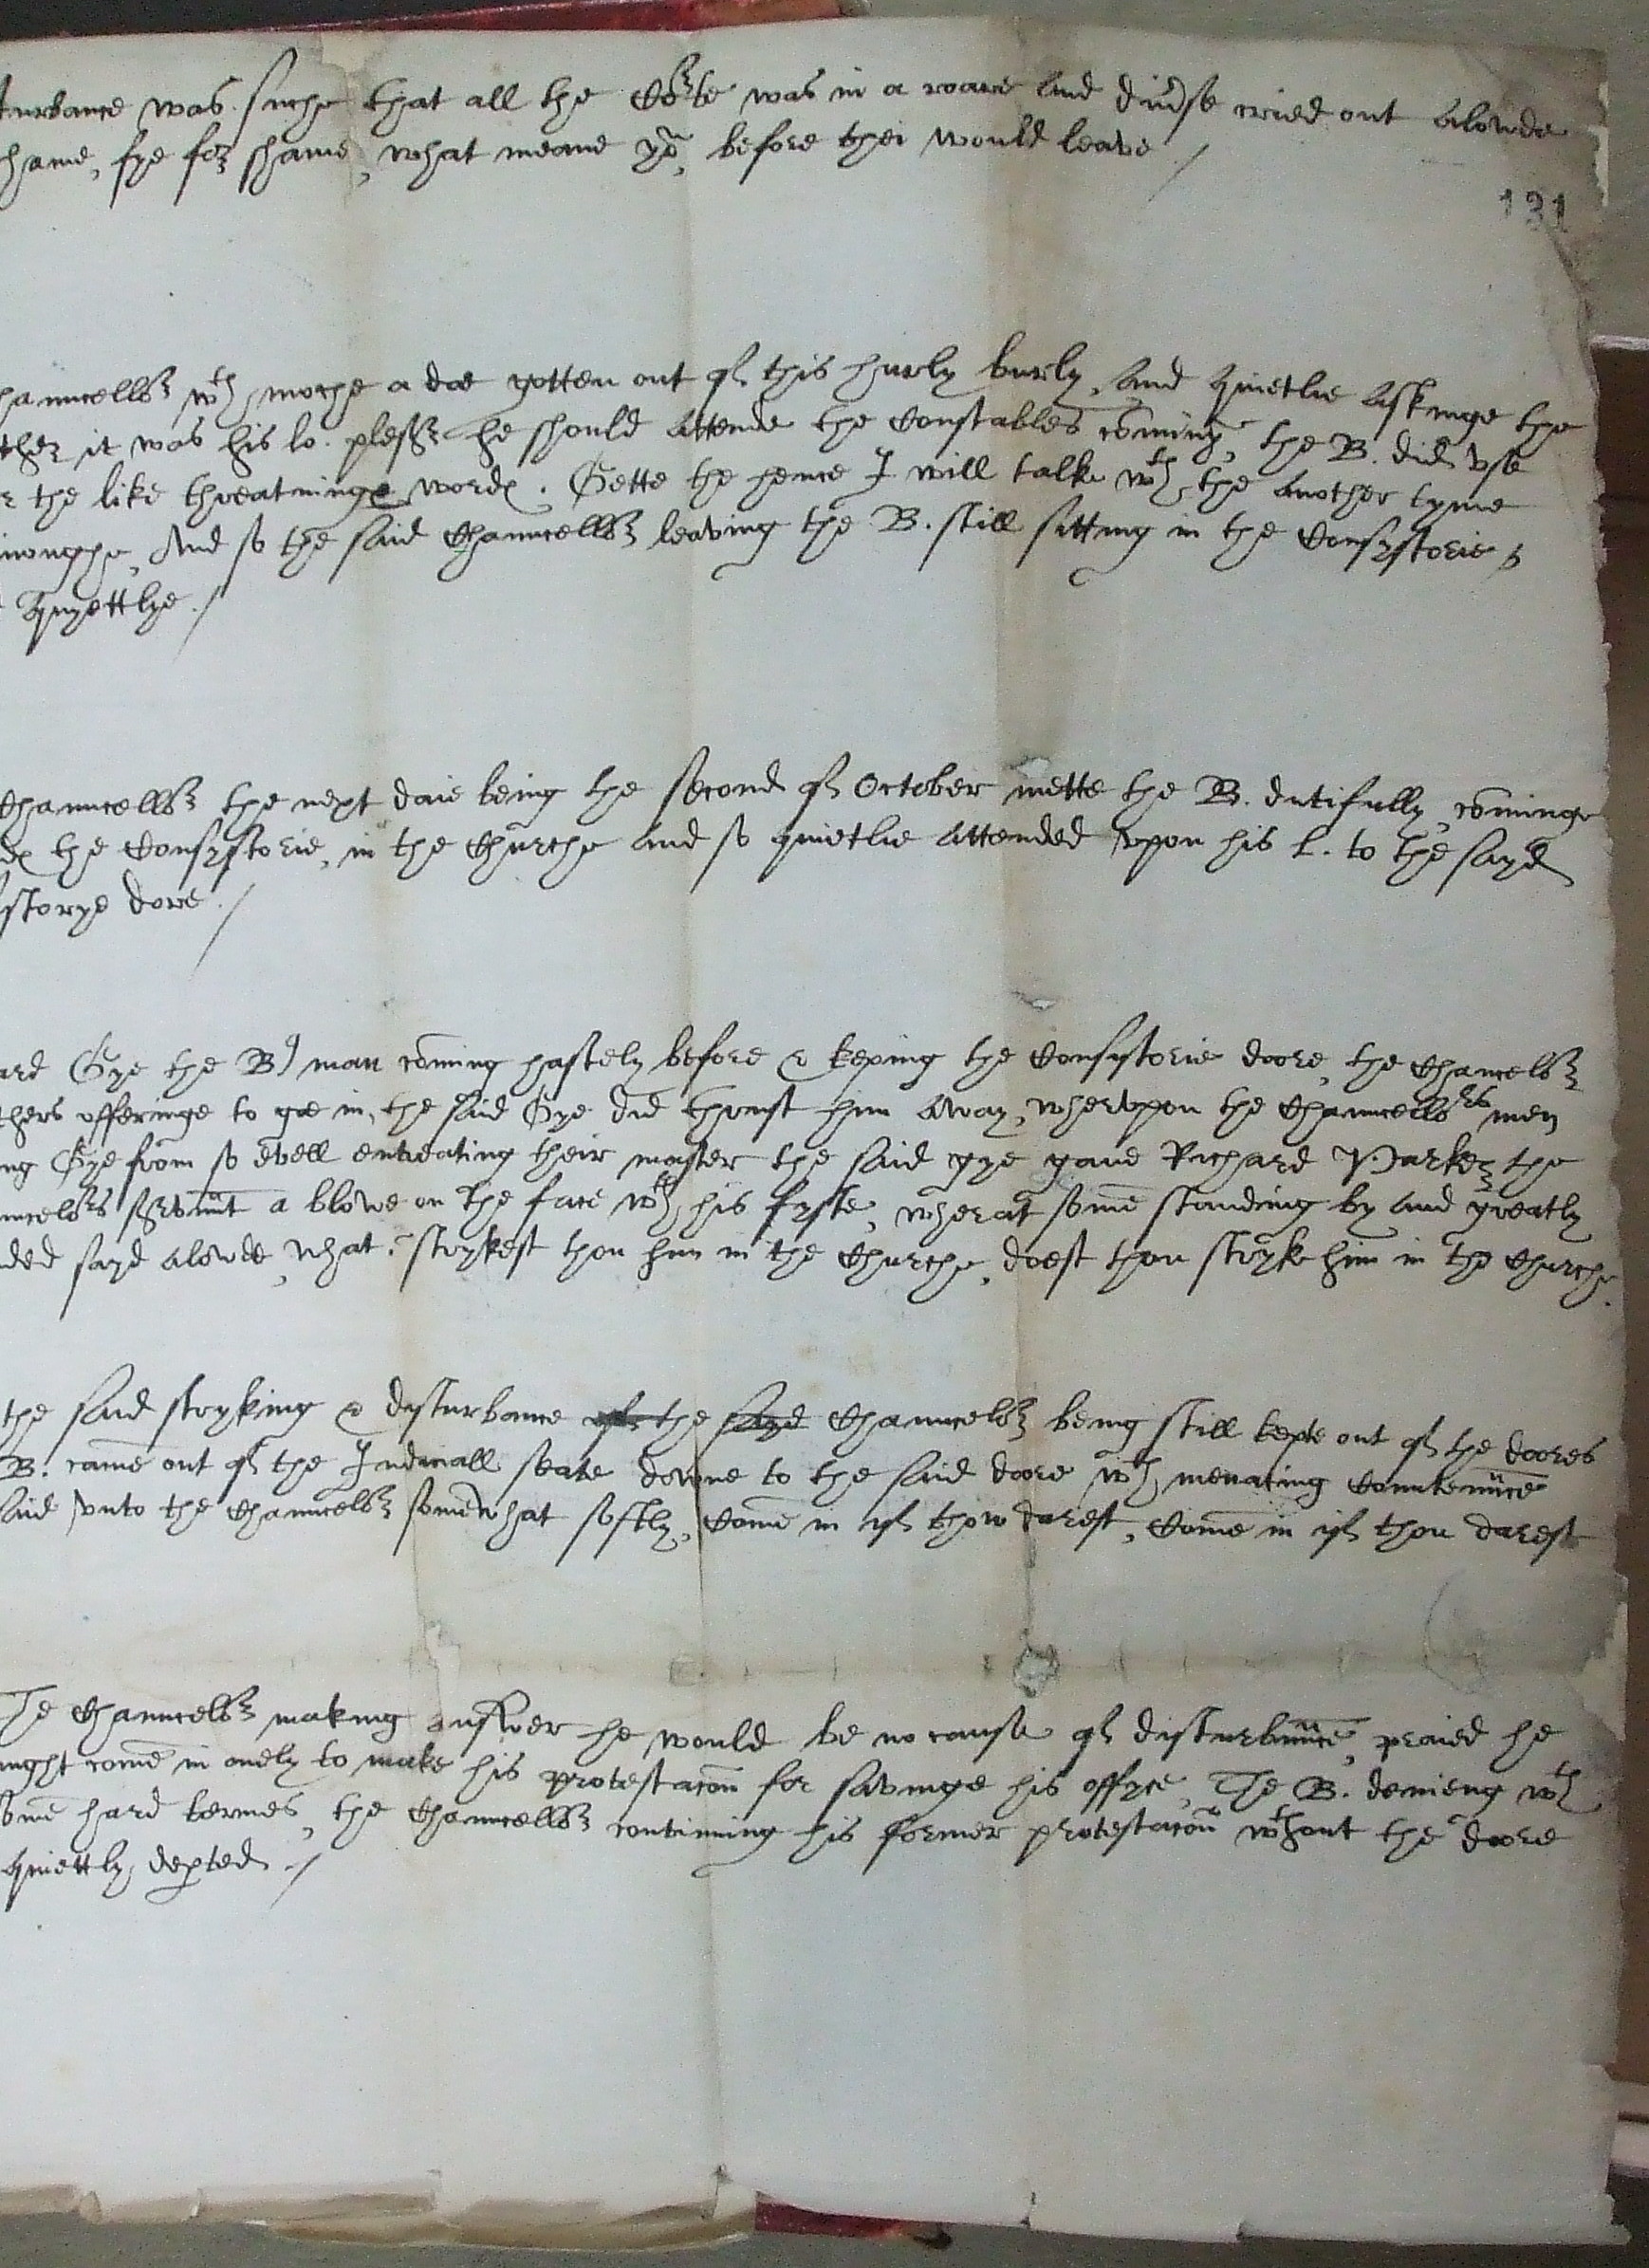 turbance was suche that all the Corte was in a roare And diu'se cried out Alowde
hame, fye for shame, what meane yo, before thei would leave /
131
hauncellor wth moche a doe gotten out of this hurly burly, And quietlie Askinge the
ther it was his lo. plesr he should Attende the Constables cōming, the B. did vse
r the like threatninge words. Gette the hence I will talke wth the Another tyme
inoughe, And so the said Chauncellor leaving the B. still sitting in the Consystorie
quyettlye. /
Chauncellor the next daie being the second of October mette the B. dutifully, cōminge
ds the Consystorie, in the Churche And so quietlie Attended vpon his L. to the sayd
storye dore. /
ard Gye the Bs man cōming hastely before & keping the Consystorie doore, the Chancelor
thers offeringe to goe in, the said Gye did thrust him Away, whervpon the Chauncellors men
ng Gye from so evell entreating their master the said Gye gaue Richard Parker the
ncelors servnt a blowe on the face wth his fyste, wherat some standing by And greatly
ded sayd Alowde, what? strykest thou him in the Churche, doest thou stryke him in the Churche.
the said stryking & disturbance of the sayd Chauncelor being still kepte out of the doores
B. came out of the Iudiciall seate downe to the said doore wth menacing Countennce
said vnto the Chauncelor somewhat softly, Come in if thow darest, Come in if thou darest
The Chauncelor making Answer he would be no cause of disturbnnce, praied he
myght come in onely to make his protestacon for savinge his offyce, The B. denieng wth
some hard termes, the Chauncellor continuing his former protestacon wthout the doore
quiettly dep'ted. /